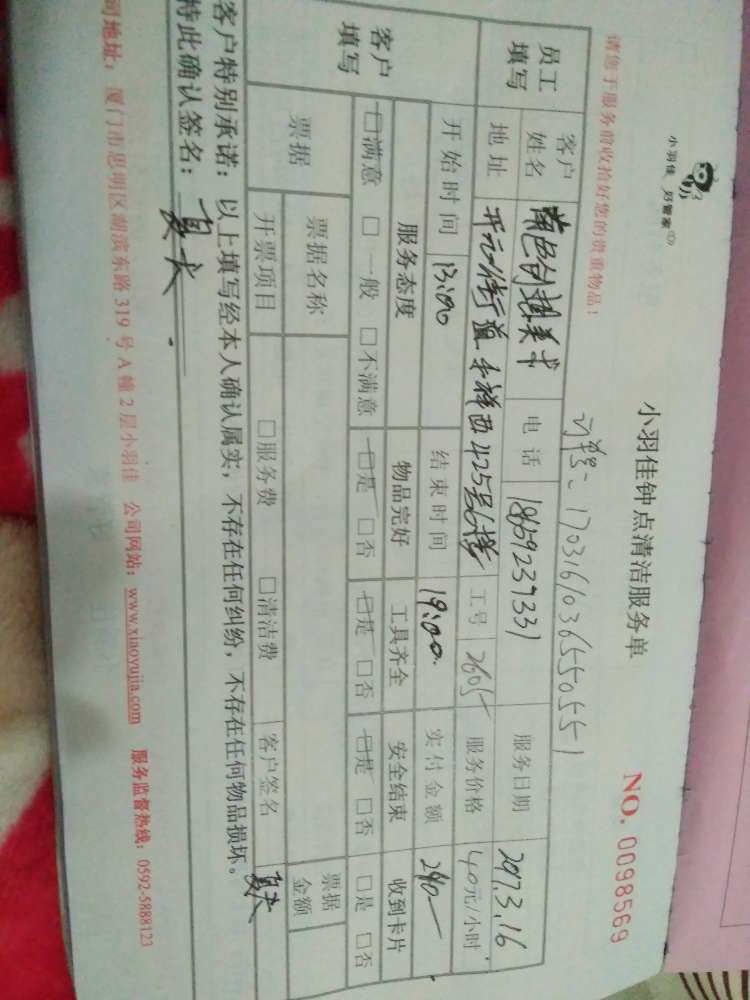 小羽佳 好管家
小羽佳钟点清洁服务单
NO. 0098569
请您于服务前收拾好您的贵重物品！
订单号: 1703161036550551
员工填写 客户姓名 电话 18659239331 服务日期 2017.3.16
地址 开元街道 禾祥西425号6楼 工号 2605 服务价格 40元/小时
客户填写 开始时间 13:00 结束时间 19:00 实付金额 240
服务态度 物品完好 工具齐全 安全结束 收到卡片
□满意 □一般 □不满意 □是 □否 □是 □否 □是 □否 □是 □否
票据 票据名称 票据金额
开票项目 □服务费 □清洁费 客户签名
客户特别承诺：以上填写经本人确认属实，不存在任何纠纷，不存在任何物品损坏。
特此确认签名：
司地址：厦门市思明区湖滨东路 319 号 A 幢 2 层小羽佳 公司网站：www.xiaoyujia.com 服务监督热线：0592-5888123